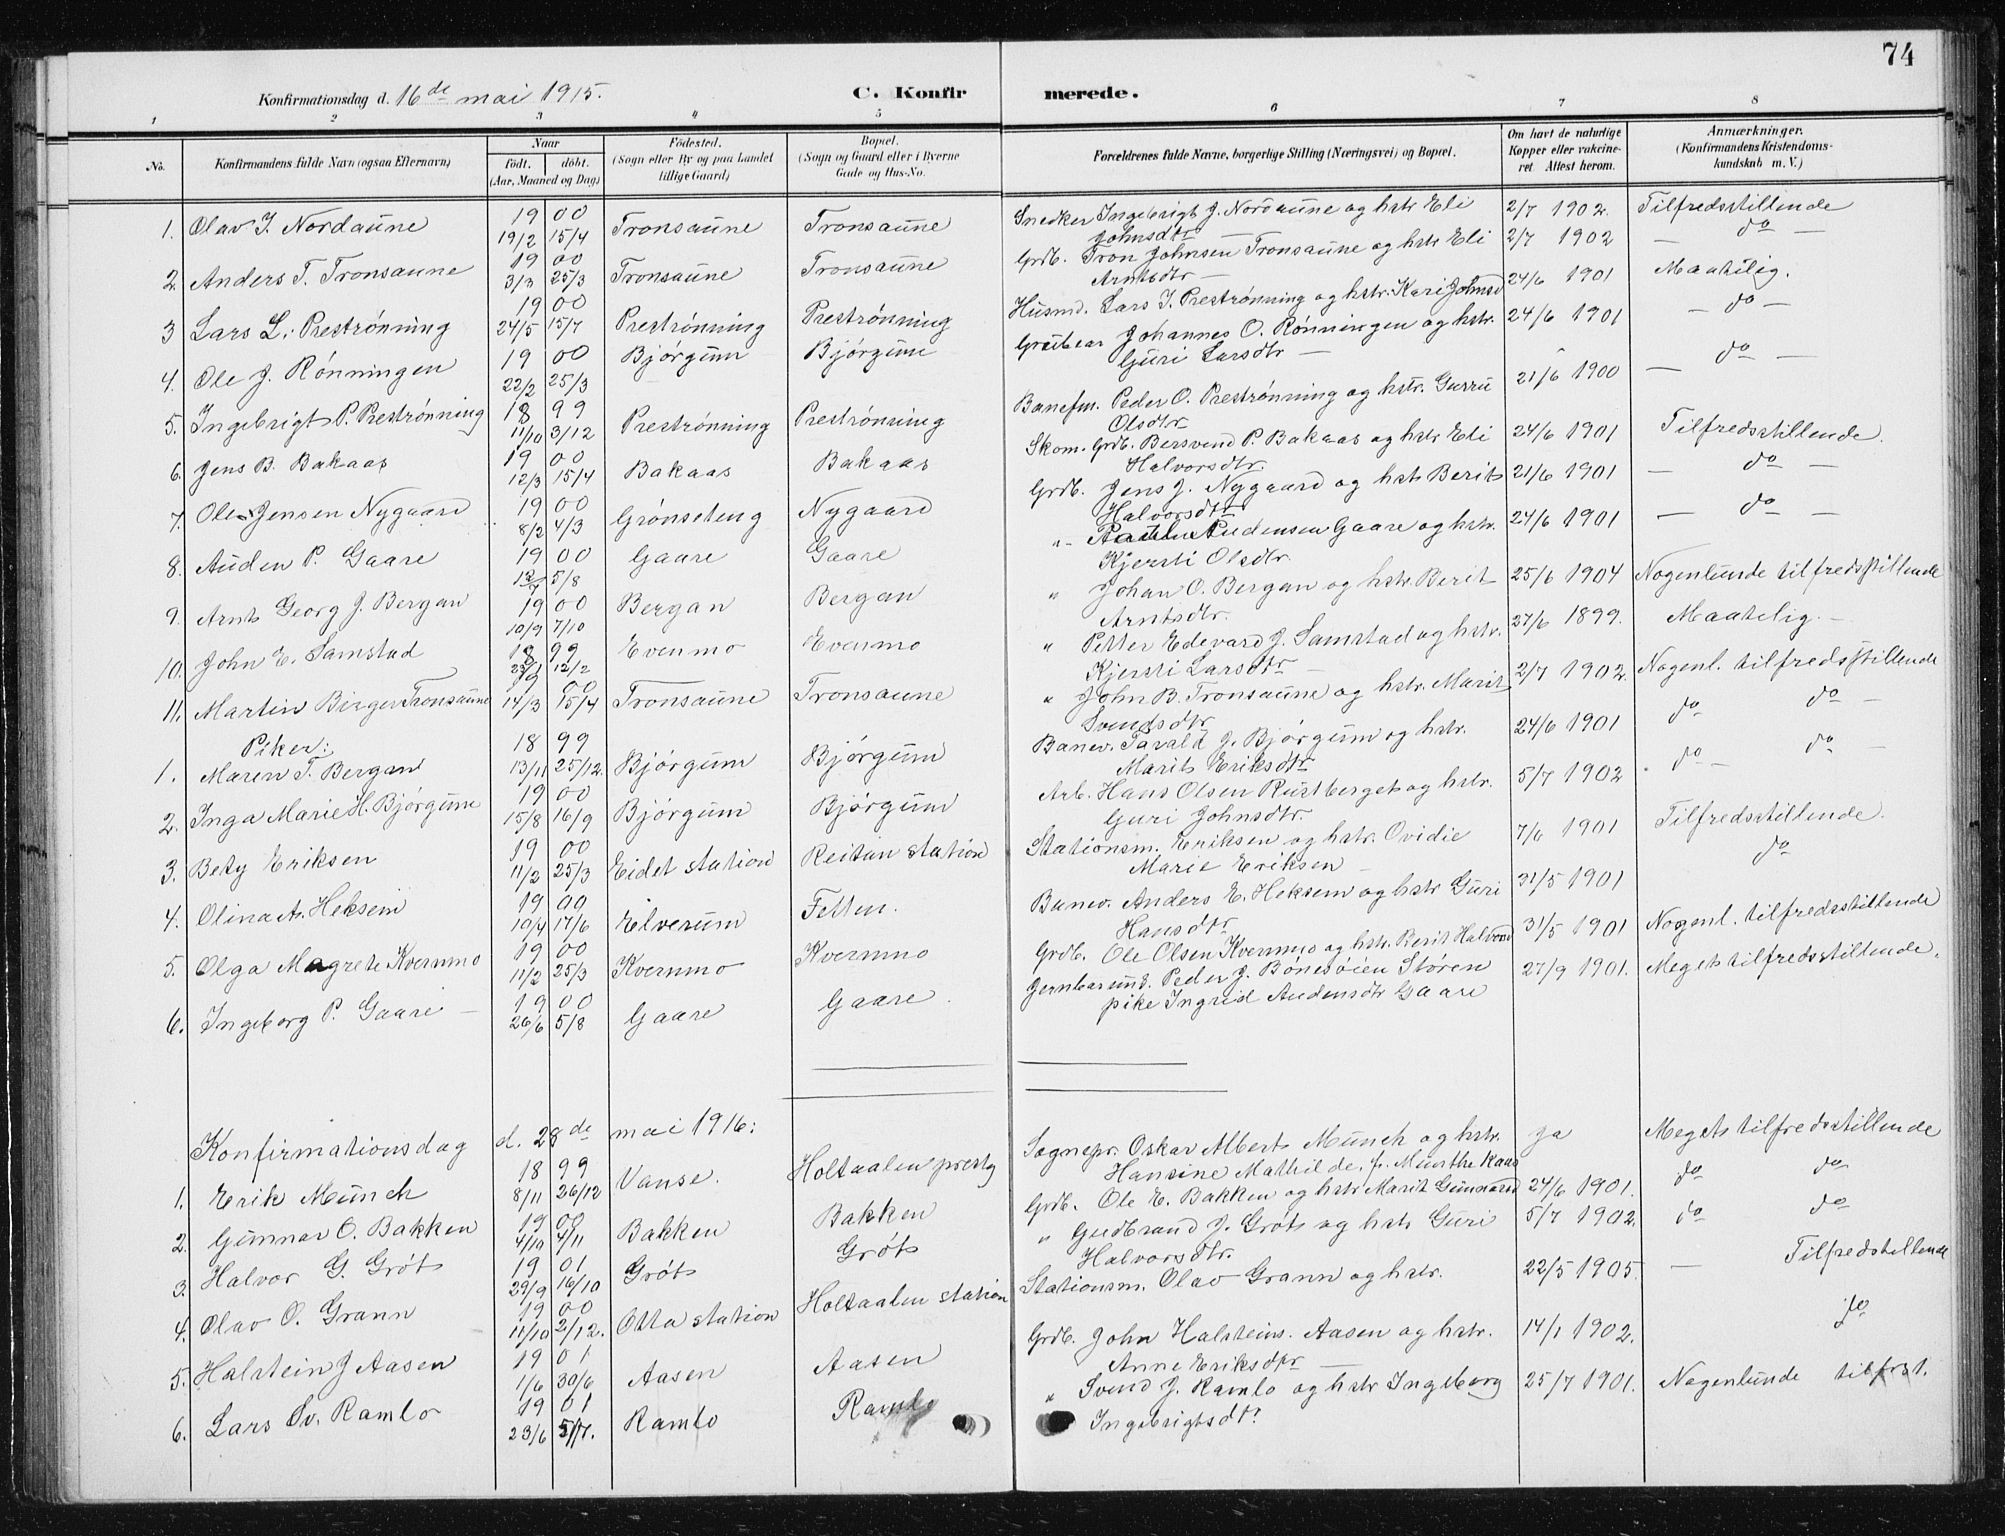 74
Konfirmationsdag d. 16de mai 1915. C. Konfirmerede.
1 2 3 4 5 6 7 8
No. Konfirmandens fulde Navn (ogsaa Efternavn) Naar født, døbt. (Aar, Maaned og Dag) Fødested. (Sogn eller By og paa Landet tillige Gaard) Bopæl. (Sogn og Gaard eller i Byerne Gade og Hus-No. Forældrenes fulde Navne, borgerlige Stilling (Næringsvei) og Bopæl. Om havt de naturlige Kopper eller vakcineret Attest herom. Anmærkninger. (Konfirmandens Kristendomskundskab m. V.)
1. Olav I. Nordaune 1900 19/2 15/4 Tronsaune Tronsaune Snedker Ingebrigt J. Nordaune og hstr Eli Johnsdtr 2/7 1902. Tilfredsstillende
2. Anders T. Tronsaune 1900 3/3 25/3 Tronsaune Tronsaune Grdb. Tron Johnsen Tronsaune og hstr Eli Arntsdtr — 2/7 1902 — do —
3 Lars L. Prestrønning 1900 24/5 15/7 Prestrønning Prestrønning Husmd. Lars I. Prestrønning og hstr. Kari Johnsd 24/6 1901 Maatelig.
4. Ole J. Rønningen 1900 22/2 25/3 Bjørgum Bjørgum Grubear Johannes O. Rønningen og hstr. Guri Larsdtr — 24/6 1901 — do —
5. Ingebrigt P. Prestrønning 1899 11/10 3/12 Prestrønning Prestrønning Banefm. Peder O. Prestrønning og hstr. Gurru Olsdtr 21/6 1900 — do —
6. Jens B. Bakaas 1900 12/3 15/4 Bakaas Bakaas Skom. Grdb. Bersvend P. Bakaas og hstr Eli Halvorsdtr. 24/6 1901 Tilfredsstillende.
7. Ole Jensen Nygaard 1900 8/2 4/3 Grønseteng Nygaard Grdb. Jens J. Nygaard og hstr Berit Halvorsdtr 21/6 1901 — do —
8. Auden P. Gaare 1900 5/8 Gaare Gaare „ Audensen Gaare og hstr. Kjersti Olsdtr. 24/6 1901 — do —
9. Arnt Georg J. Bergan 1900 10/9 7/10 Bergan Bergan „ Johan O. Bergan og hstr. Berit Arntsdtr. 25/6 1904 Nogenlunde tilfredsstillende
10. John E. Samstad 1899 12/2 Evenmo Evenmo „ Petter Edevard J. Samstad og hstr. Kjersti Larsdtr — 27/6 1899. Maatelig. —
11. Martin Birger Tronsaune 1900 14/3 15/4 Tronsaune Tronsaune „ John B. Tronsaune og hstr. Marit Svendsdtr 2/7 1902. Nogenl. tilfredsstillende
Piker:
1. Maren T. Bergan 1899 13/11 25/12. Bjørgum Bjørgum Banev. Tavald J. Bjørgum og hstr. Marit Eriksdtr 24/6 1901 do do —
2. Inga Marie H. Bjørgum 1900 15/8 16/9 Bjørgum Bjørgum Arb. Hans Olsen Rustberget og hstr. Guri Johnsdtr. 5/7 1902 do — do —
3. Bety Eriksen 1900 11/2 25/3 Eidet station Reitan station Stationsm. Eriksen og hstr. Ovidie Marie Eriksen — 7/6 1901 Tilfredsstillende.
4. Olina A. Heksem 1900 10/4 17/6 Elverum Fetten. Banev. Anders E. Heksem og hstr Guri Hansdtr 31/5 1901 do
5. Olga Magrete Kvernmo 1900 11/2 25/3 Kvernmo Kvernmo Grdb. Ole Olsen Kvernmo og hstr. Berit Halvorsd 31/5 1901 Nogenl. tilfredsstillende
6. Ingeborg P. Gaare — 1900 26/6 5/8 Gaare Gaare. Jernbarund. Peder J. Bønesøien Støren pike Ingrid Audensdtr Gaare 27/9 1901. Meget tilfredsstillende.
Konfirmationsdag d. 28de mai 1916:
1. Erik Münch 1899 8/11 26/12 Vanse. Holtaalen prestg Sognepr. Oskar Albert Münch og hstr. Hansine Mathilde, f. Munthe Kaas ja Meget tilfredsstillende
2. Gunnar O. Bakken 1900 4/10 4/11 Bakken Bakken Grdb. Ole E. Bakken og hstr Marit Gunnarsd 24/6 1901. do do
3. Halvor G. Grøt 1901 29/9 16/10 Grøt Grøt „ Gudbrand J. Grøt og hstr Guri Halvorsdtr. 5/7 1902. do do
4. Olav O. Grann 1900 11/10 2/12. Otta station Holtaalen station Stationsm. Olav Grann og hstr. 22/5 1905. — Tilfredstillende
5. Halstein J Aasen 1901 1/6 30/6 Aasen Aasen Grdb. John Halsteins. Aasen og hstr. Anne Eriksdtr — 14/1 1902. do
6. Lars Sv. Ramlo 1901 23/6 5/7. Ramlo Ramlo „ Svend J. Ramlo og hstr Ingeborg Ingebrigtsdtr 25/7 1901. Nogenlunde tilfrst.